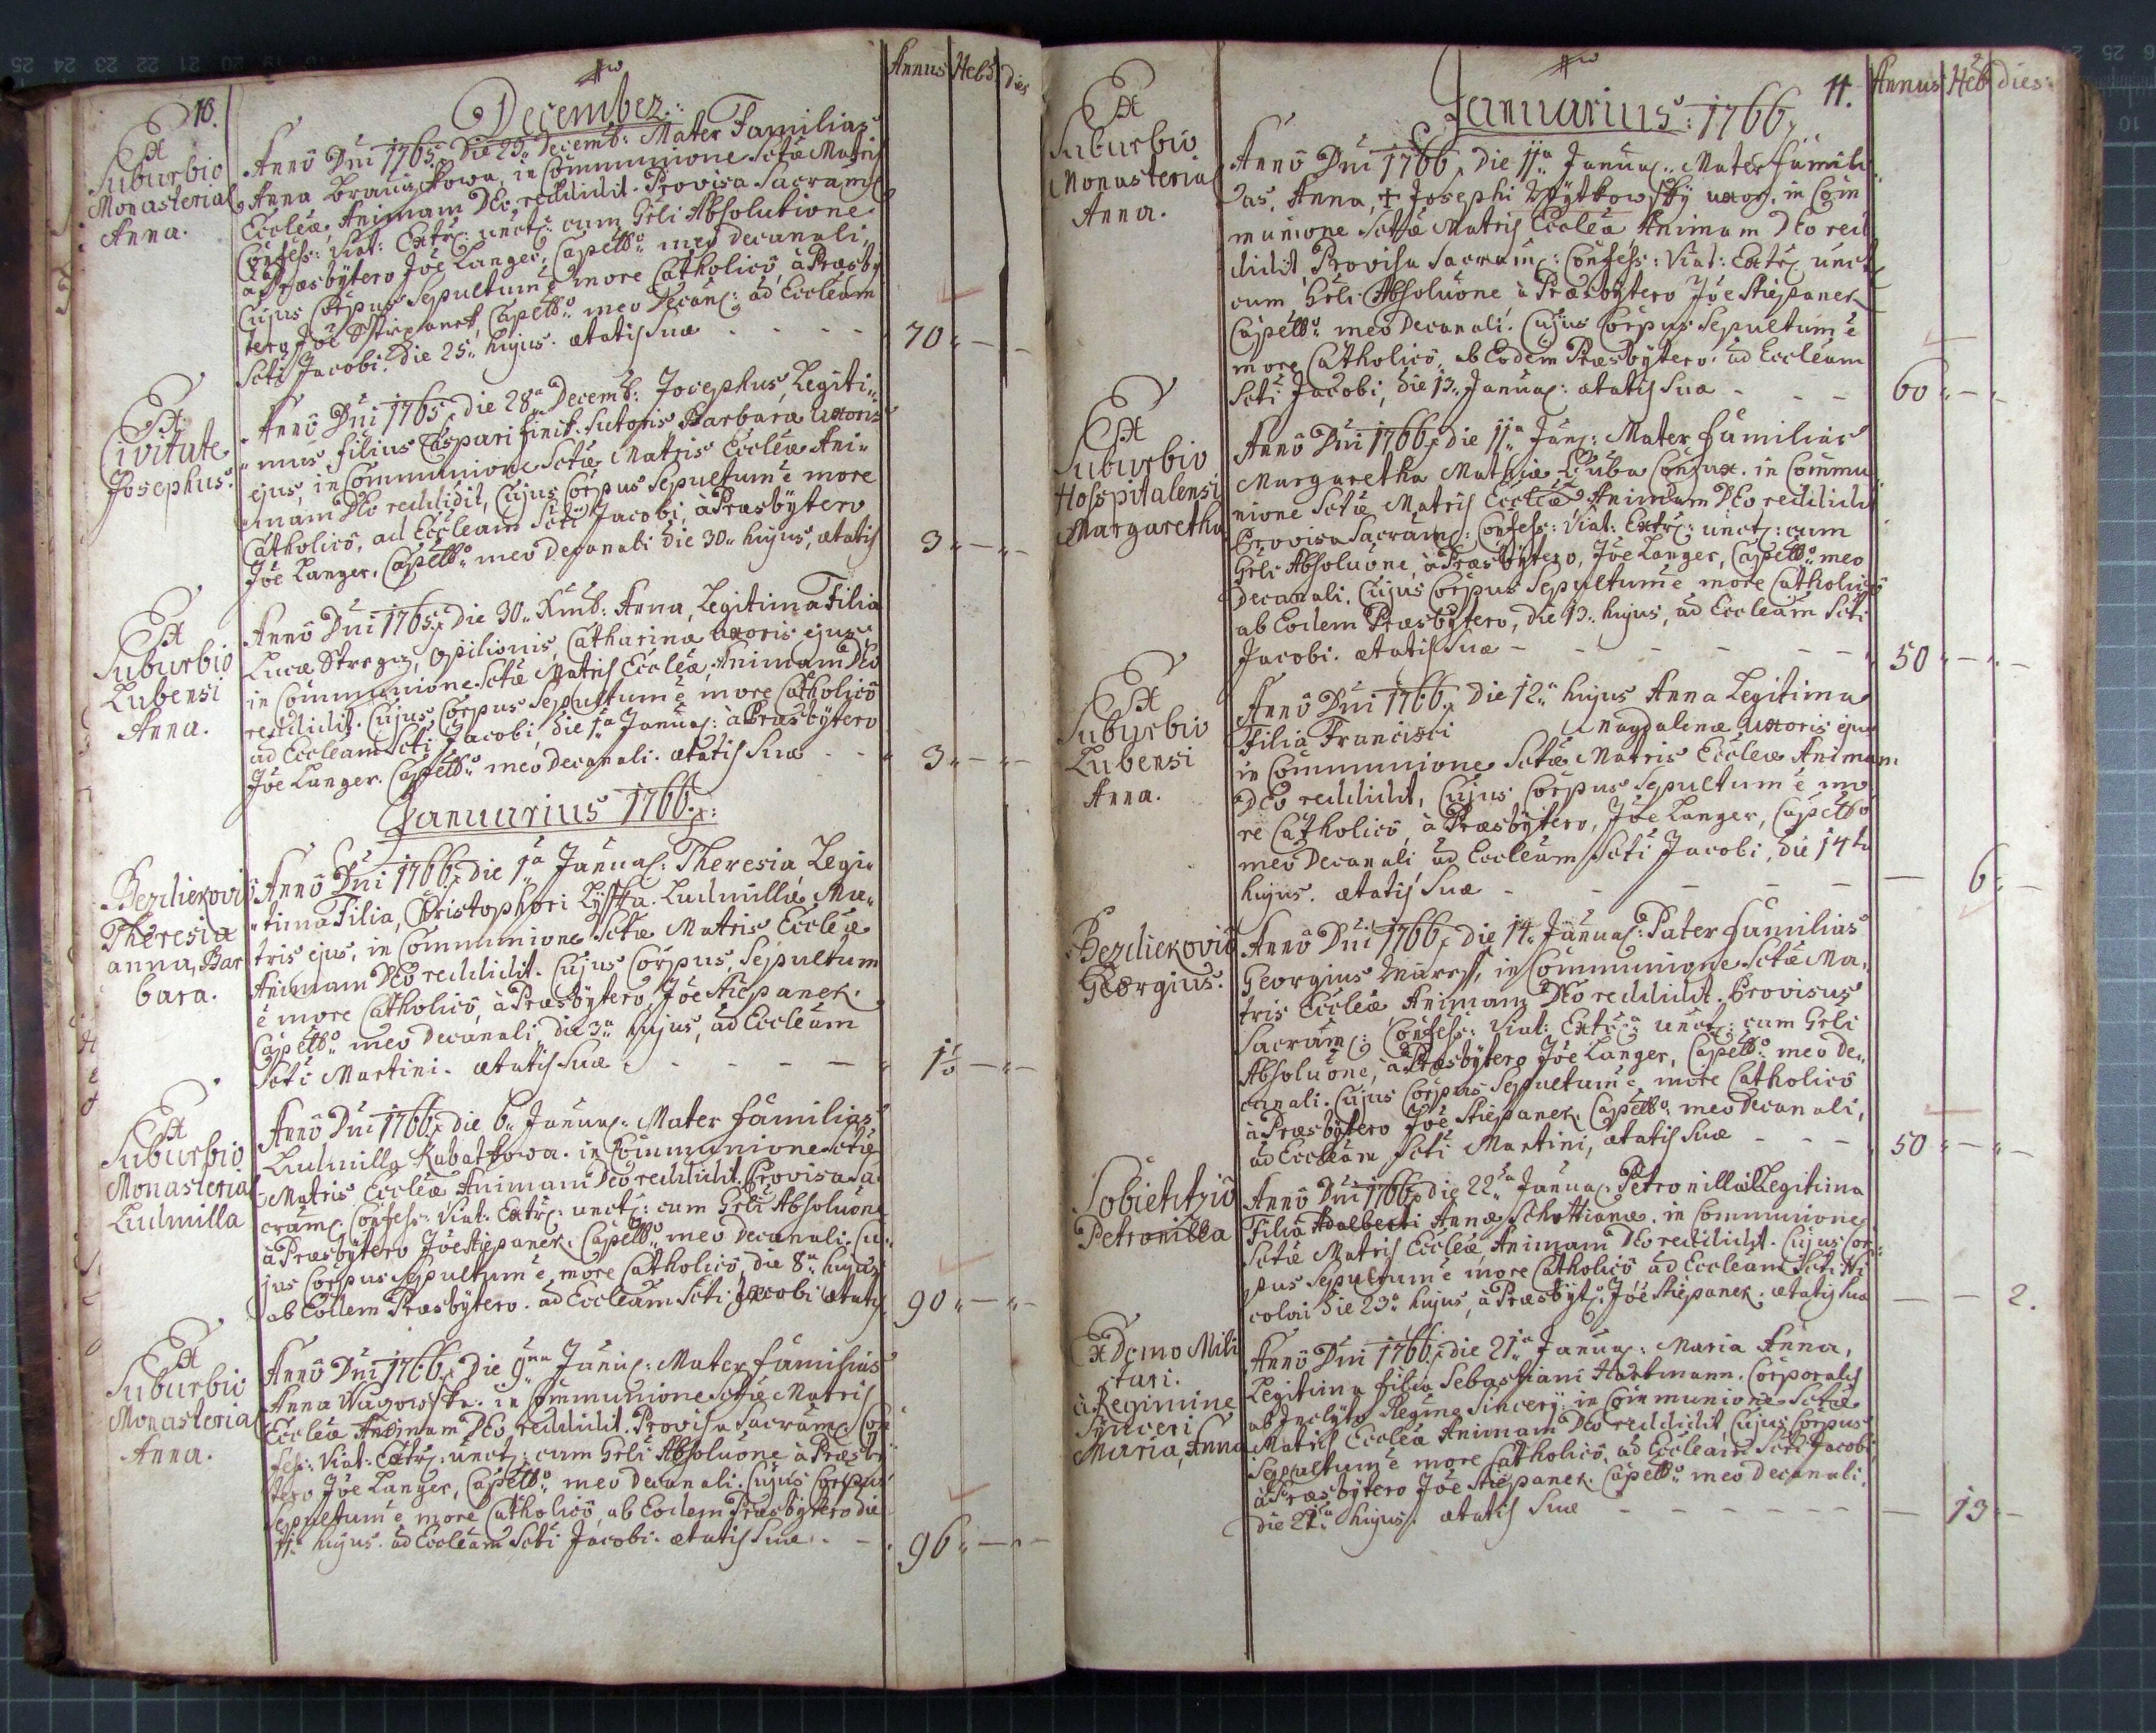 10.
December:
Annus Hebd Dies
Ex
Suburbio
Monasterial
Anna.
Annô Dni 1765 Die 23a Decemb: Mater Familias
Anna in Communione Sctæ Matris
Eccleæ, Animam DEo reddidit. Provisa Sacram:
Confess: Viat: Extr: unct: cum Grli Absolutione
à Præsbÿtero Jõe Langer, Capellõ meo Decanali,
Cujus Corpus Sepultum ẽ more Catholicô, à Præsbÿ
tero Jõe Stiepanek, Capellõ meo Decan: ad Eccleam
Scti Jacobi. Die 25a hujus. ætatis suæ - - - -
70 „ — „ —
Ex
Civitate
Josephus.
Annô Dni 1765 die 28a Decemb: Josephus, Legiti„
„mus filius Caspari Sutoris Barbaræ Uxoris
ejus, in Communione Sctæ Matris Eccleæ Ani„
„mam DEo reddidit, Cujus Corpus Sepultum ẽ more
Catholicô, ad Eccleam Scti Jacobi, à Præsbÿtero
Jõe Langer, Capellõ meo Decanali die 30a hujus, ætatis
3 „ — „ —
Ex
Suburbio
Lubensi
Anna.
Annô Dni 1765 die 30a Xmb: Anna, Legitima Filia
Lucæ Opilionis, Catharinæ Uxoris ejus,
in Communione Sctæ Matris Eccleæ, Animam DEo
reddidit. Cujus Corpus Sepultum ẽ more Catholicô
ad Eccleam Scti Jacobi, die 1a Januar: à Præsbÿtero
Jõe Langer. Capellõ meo Decanali. ætatis suæ - -
3 „ — „ —
Januarius 1766:
Bezdiekoviô
Theresia
anna, Bar
bara.
Annô Dni 1766 die 1a Januar: Theresia, Legi„
„tima Filia, Christophori Lysska. Ludmillæ Ma„
tris ejus, in Communione Sctæ Matris Eccleæ
Animam DEo reddidit. Cujus Corpus, Sepultum
ẽ more Catholicô, à Præsbÿtero, Jõe Stiepanek.
Capellõ meo Decanali, die 3a hujus, ad Eccleam
Scti Martini. ætatis suæ - - - - -
1½ — „ —
Ex
Suburbio
Monasterial
Ludmilla
Annô Dni 1766 die 6a Januar: Mater familias
Ludmilla Rabatkowa. in Communione Sctæ
Matris Eccleæ Animam DEo reddidit. Provisa Sa
cram: Confess: Viat: Extr: unct: cum Grli Absoluõne
à Præsbÿtero Jõe Stiepanek. Capellõ meo Decanali. Cu„
jus Corpus Sepultum ẽ more Catholicô, die 8a hujus
ab Eodem Præsbÿtero. ad Eccleam Scti Jacobi ætatis
90 „ — „ —
Ex
Suburbio
Monasterial
Anna.
Annô Dni 1766 Die 9na Januar: Mater familias
Anna Wagowska. in Communione Sctæ Matris
Eccleæ Animam DEo reddidit. Provisa Sacram: Con
fess: Viat: Extr: unct: cum Grli Absoluõne à Præsbÿ
tero Jõe Langer, Capellõ meo Decanali. Cujus Corpus
Sepultum ẽ more Catholicô ab Eodem Præsbÿtero die
11a hujus. ad Eccleam Scti Jacobi. ætatis suæ - -
96 „ — „ —
11.
Januarius: 1766
Annus Heb dies
Ex
Suburbio
Monasterial
Anna.
Annô Dni 1766 die 11a Januar: Mater famili
as, Anna, + Josephi Wÿtkowskÿ uxor, in Com
munione Sctæ Matris Eccleæ Animam DEo red
didit, Provisa Sacram: Confess: Viat: Extr: unct:
cum Grli Absoluõne à Præsbÿtero Jõe Stiepanek
Capellõ meo Decanali. Cujus Corpus Sepultum ẽ
more Catholicô, ab Eodem Præsbÿtero. ad Eccleam
Scti Jacobi, die 13a Januar: ætatis suæ - - -
60 „ — „ —
Ex
Suburbio
Hosspitalensi
Margaretha
Annô Dni 1766 die 11a Jan: Mater familias
Margaretha Mathiæ Conjux. in Commu
nione Sctæ Matris Eccleæ Animam DEo reddidit
Provisa Sacram: Confess: Viat: Extr: unct: cum
Grli Absoluõne, à Præsbÿtero, Jõe Langer, Capellõ meo
Decanali. Cujus Corpus Sepultum ẽ more Catholicô
ab Eodem Præsbÿtero, die 13a hujus, ad Eccleam Scti
Jacobi. ætatis suæ - - - - - -
50 „ — „ —
Ex
Suburbio
Lubensi
Anna.
Annô Dni 1766 die 12a hujus Anna Legitima
Filia Francisci Magdalenæ Uxoris ejus
in Communione Sctæ Matris Eccleæ Animam
DEo reddidit, Cujus Corpus Sepultum ẽ mo
re Catholicô, à Præsbÿtero, Jõe Langer, Capellõ
meo Decanali ad Eccleam Scti Jacobi, die 14ta
hujus. ætatis suæ - - - - -
— 6 „ —
Bezdiekoviô
Georgius.
Annô Dni 1766 die 14a Januar: Pater familias
Georgius in Communione Sctæ Ma„
tris Eccleæ, Animam DEo reddidit. Provisus
Sacram: Confess: Viat: Extr: unct: cum Grli
Absoluõne, à Præsbÿtero Jõe Langer, Capellõ meo De„
canali. Cujus Corpus Sepultum ẽ more Catholicô
à Præsbÿtero Jõe Stiepanek. Capellõ meo Decanali,
ad Eccleam Scti Martini, ætatis suæ - - -
50 „ — „ —
Sobietitziô
Petronilla
Annô Dni 1766 die 22a Januar: Petronilla Legitima
Filia Adalberti Annæ Schottianæ. in Communione
Sctæ Matris Eccleæ, Animam DEo reddidit. Cujus Cor„
pus Sepultum ẽ more Catholicô ad Eccleam Scti Ni
colai die 23a hujus, à Præsbÿt: Jõe Stiepanek. ætatis suæ
— — 2.
Ex Domo Mili
tari.
à Regimine
Synceri
Maria, Anna
Annô Dni 1766 die 21a Januar: Maria Anna,
Legitima filia Sebastiani Hartmann. Corporalis
ab Inclÿto Regime Sincerÿ: in Communione Sctæ
Matris Eccleæ Animam DEo reddidit, Cujus Corpus
Sepultum ẽ more Catholicô, ad Eccleam Scti Jacobi,
à Præsbÿtero Jõe Stiepanek. Capellõ meo Decanali.
die 22a hujus. ætatis suæ - - - - - -
— 13 „ —